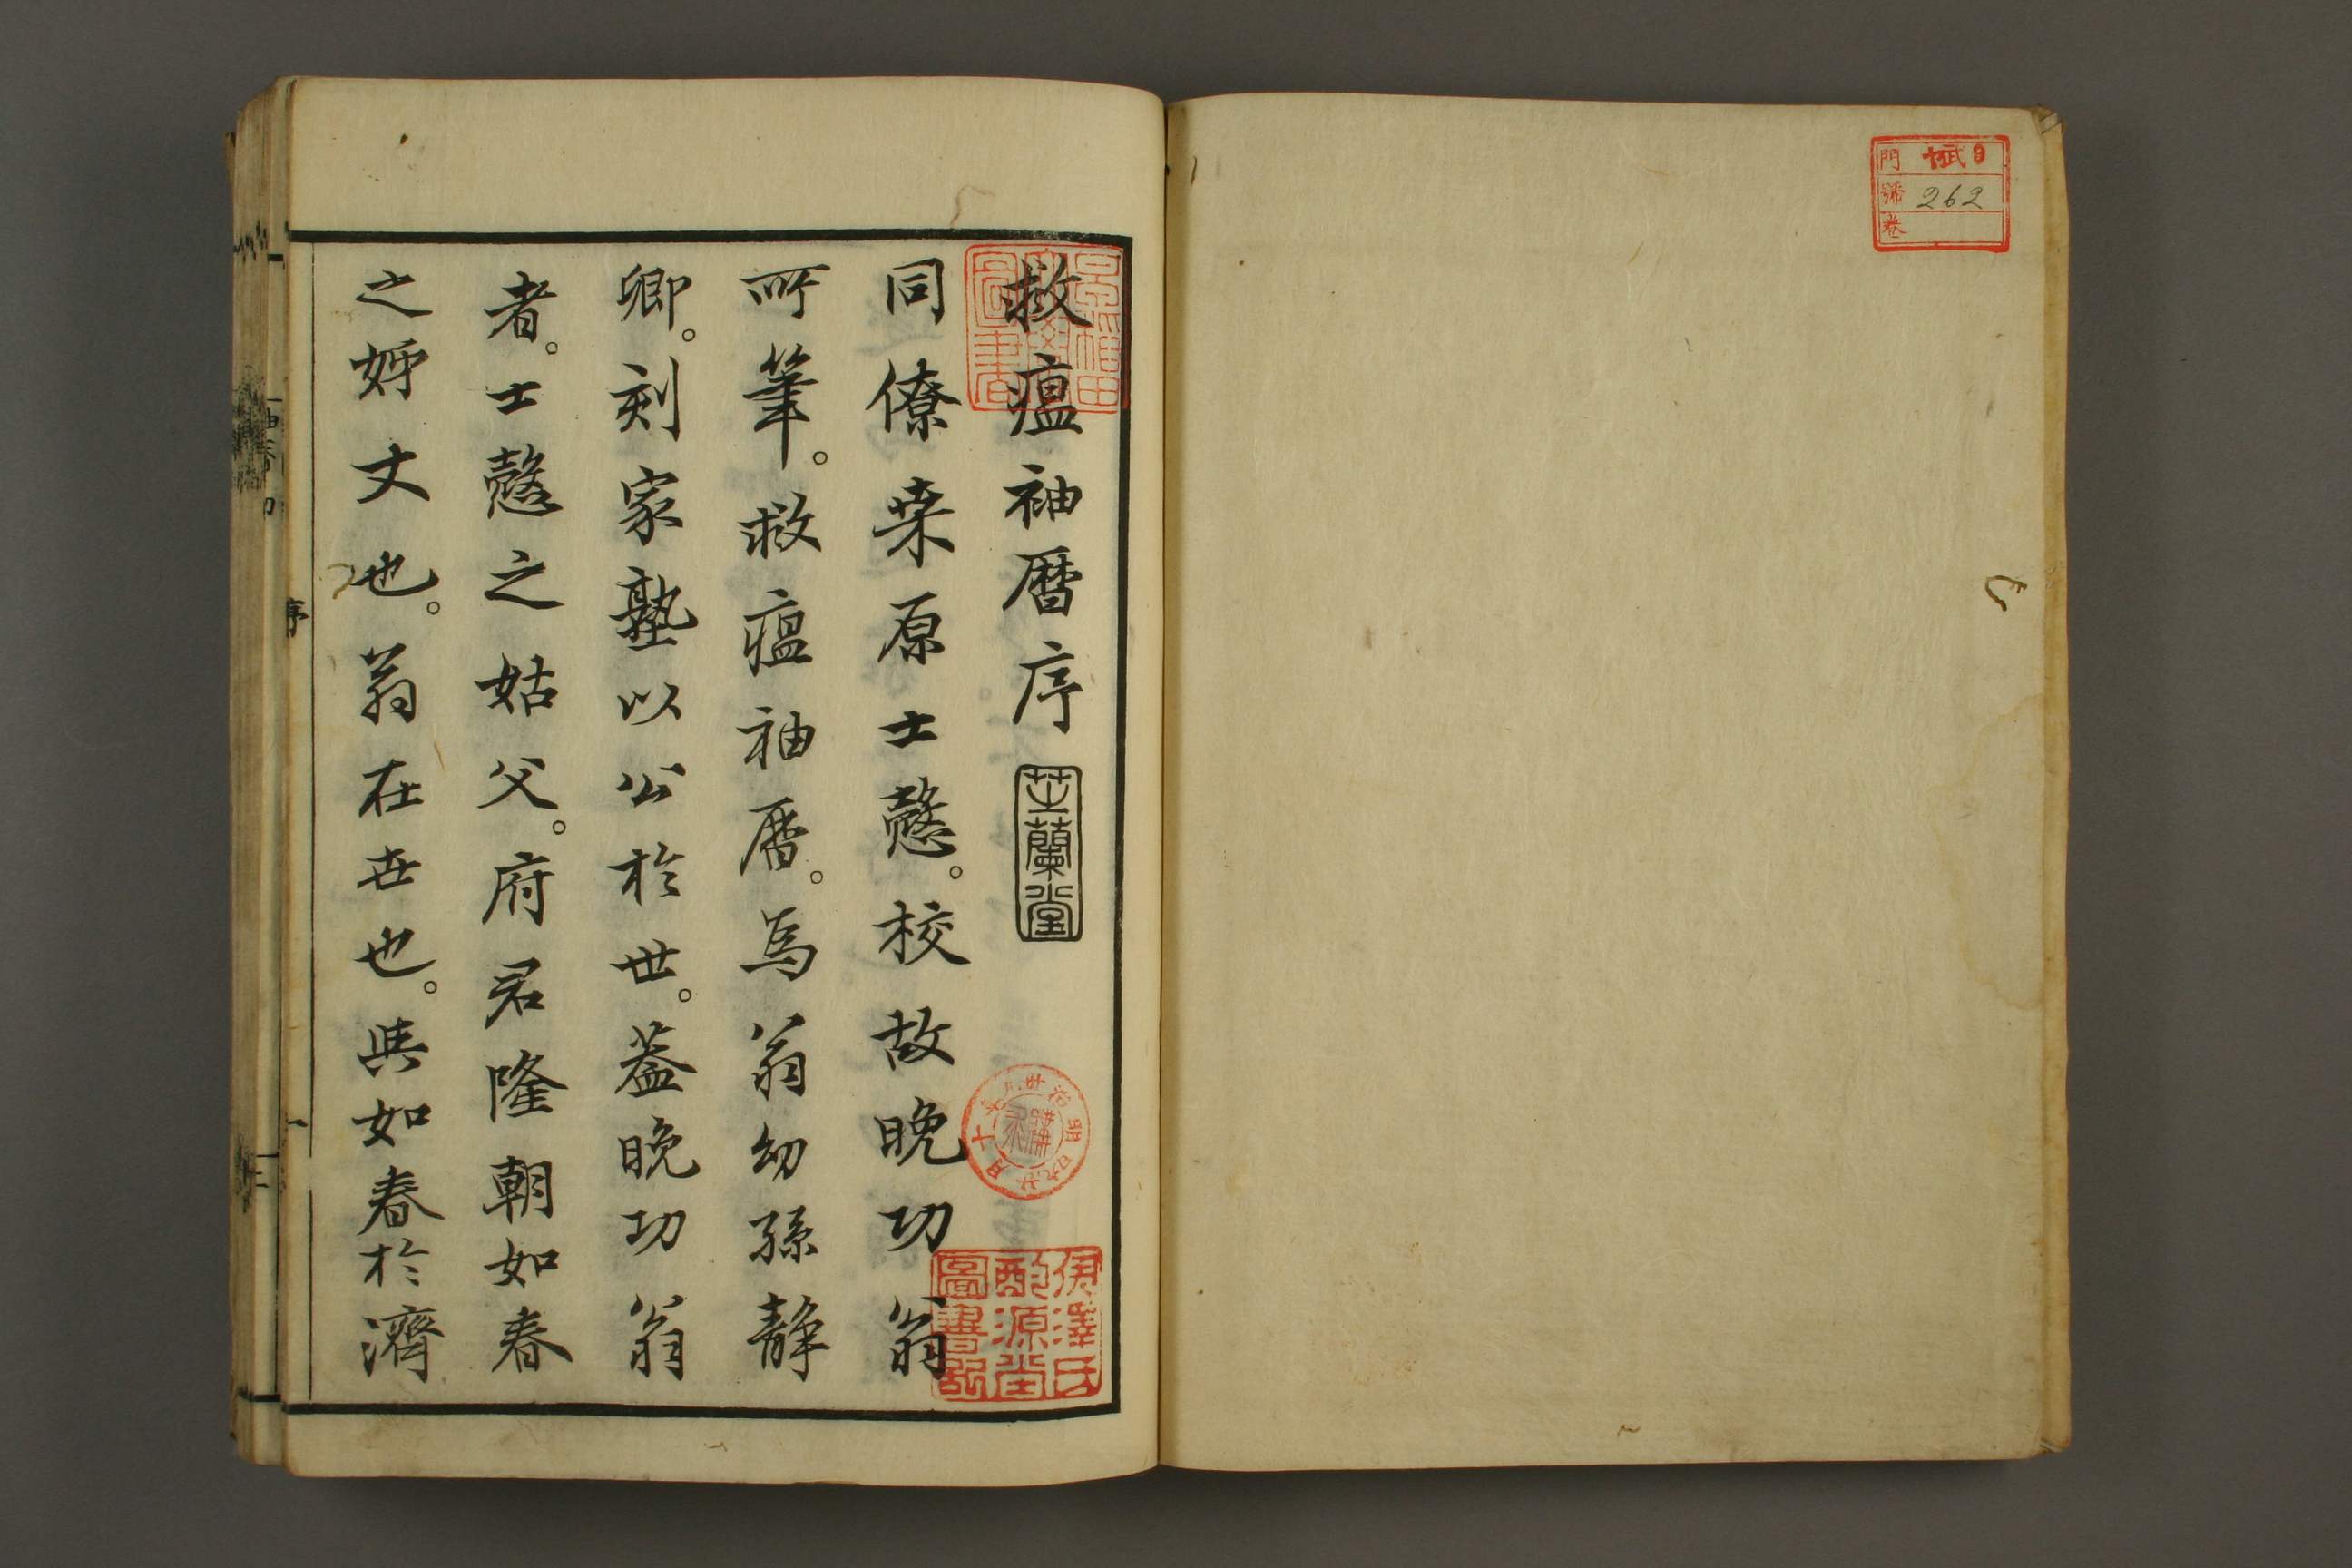 門 拭9
號 262
卷
救瘟袖暦序 芷蘭堂
同僚桒原士愨。校故晩功翁
所筆。救瘟袖暦。爲翁幼孫靜
卿。刻家塾以公於世。蓋晩功翁
者。士愨之姑父。府君隆朝如春
之婿丈也。翁在世也。與如春於濟
伊澤氏
酌源堂
圖書記
圖書
序
一